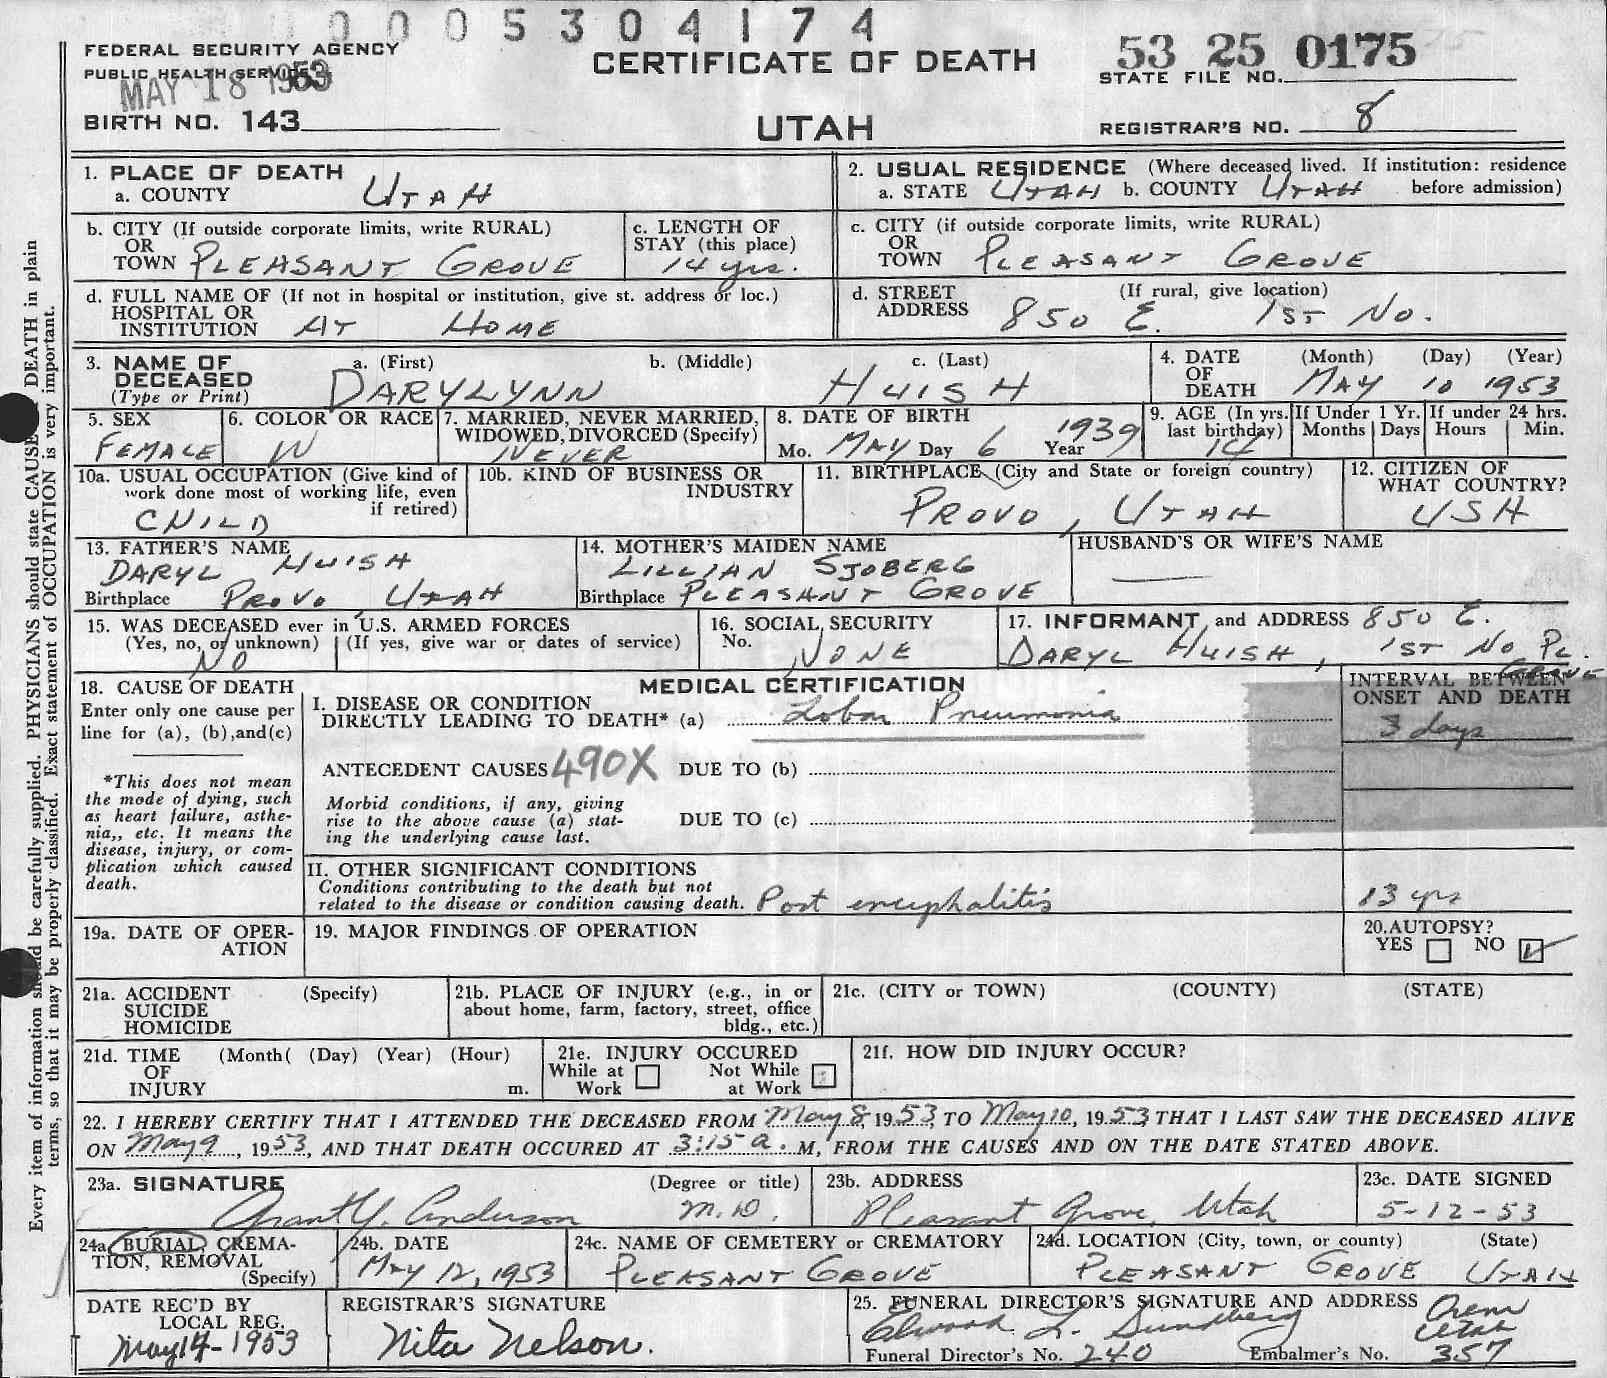 0 0 0 5 3 0 4 1 7 4
FEDERAL SECURITY AGENCY
PUBLIC HEALTH SERVICE
MAY 18 1953
CERTIFICATE OF DEATH
UTAH
53 25 0175
STATE FILE NO.
BIRTH NO. 143
REGISTRAR'S NO. 8
1. PLACE OF DEATH
a. COUNTY UTAH
2. USUAL RESIDENCE (Where deceased lived. If institution: residence
a. STATE UTAH b. COUNTY UTAH before admission)
b. CITY (If outside corporate limits, write RURAL)
OR
TOWN PLEASANT GROVE
c. LENGTH OF
STAY (this place)
14 yrs.
c. CITY (if outside corporate limits, write RURAL)
OR
TOWN PLEASANT GROVE
d. FULL NAME OF (If not in hospital or institution, give st. address or loc.)
HOSPITAL OR
INSTITUTION AT HOME
d. STREET (If rural, give location)
ADDRESS 850 E. 1ST NO.
3. NAME OF a. (First) b. (Middle) c. (Last)
DECEASED DARYLYNN HUISH
(Type or Print)
4. DATE (Month) (Day) (Year)
OF
DEATH MAY 10 1953
5. SEX
FEMALE
6. COLOR OR RACE
W
7. MARRIED, NEVER MARRIED,
WIDOWED, DIVORCED (Specify)
NEVER
8. DATE OF BIRTH
Mo. MAY Day 6 Year 1939
9. AGE (In yrs.
last birthday)
14
If Under 1 Yr.
Months Days
If under 24 hrs.
Hours Min.
10a. USUAL OCCUPATION (Give kind of
work done most of working life, even
if retired)
CHILD
10b. KIND OF BUSINESS OR
INDUSTRY
11. BIRTHPLACE (City and State or foreign country)
PROVO, UTAH
12. CITIZEN OF
WHAT COUNTRY?
USA
13. FATHER'S NAME
DARYL HUISH
Birthplace PROVO, UTAH
14. MOTHER'S MAIDEN NAME
LILLIAN SJOBERG
Birthplace PLEASANT GROVE
HUSBAND'S OR WIFE'S NAME
15. WAS DECEASED ever in U.S. ARMED FORCES
(Yes, no, or unknown) (If yes, give war or dates of service)
NO
16. SOCIAL SECURITY
No. NONE
17. INFORMANT and ADDRESS 850 E.
DARYL HUISH, 1ST NO PL.
GROVE
18. CAUSE OF DEATH
Enter only one cause per
line for (a), (b), and (c)
*This does not mean
the mode of dying, such
as heart failure, asthe-
nia,, etc. It means the
disease, injury, or com-
plication which caused
death.
MEDICAL CERTIFICATION
I. DISEASE OR CONDITION
DIRECTLY LEADING TO DEATH* (a) Lobar Pneumonia
INTERVAL BETWEEN
ONSET AND DEATH
3 days
ANTECEDENT CAUSES 490X DUE TO (b)
Morbid conditions, if any, giving
rise to the above cause (a) stat-
ing the underlying cause last.
DUE TO (c)
II. OTHER SIGNIFICANT CONDITIONS
Conditions contributing to the death but not
related to the disease or condition causing death. Post encephalitis 13 yrs
19a. DATE OF OPER-
ATION
19. MAJOR FINDINGS OF OPERATION
20. AUTOPSY?
YES NO
21a. ACCIDENT (Specify)
SUICIDE
HOMICIDE
21b. PLACE OF INJURY (e.g., in or
about home, farm, factory, street, office
bldg., etc.)
21c. (CITY or TOWN) (COUNTY) (STATE)
21d. TIME (Month( (Day) (Year) (Hour)
OF
INJURY m.
21e. INJURY OCCURED
While at Not While
Work at Work
21f. HOW DID INJURY OCCUR?
22. I HEREBY CERTIFY THAT I ATTENDED THE DECEASED FROM May 8, 1953, TO May 10, 1953, THAT I LAST SAW THE DECEASED ALIVE
ON May 9, 1953, AND THAT DEATH OCCURED AT 3:15 a. M, FROM THE CAUSES AND ON THE DATE STATED ABOVE.
23a. SIGNATURE (Degree or title)
Grant Y. Anderson M.D.
23b. ADDRESS
Pleasant Grove, Utah
23c. DATE SIGNED
5-12-53
24a BURIAL, CREMA-
TION, REMOVAL
(Specify)
24b. DATE
MAY 12, 1953
24c. NAME OF CEMETERY or CREMATORY
PLEASANT GROVE
24d. LOCATION (City, town, or county) (State)
PLEASANT GROVE UTAH
DATE REC'D BY
LOCAL REG.
May 14-1953
REGISTRAR'S SIGNATURE
Nita Nelson.
25. FUNERAL DIRECTOR'S SIGNATURE AND ADDRESS
Elwood L. Sundberg Orem
Utah
Funeral Director's No. 240 Embalmer's No. 357
Every item of information should be carefully supplied. PHYSICIANS should state CAUSE DEATH in plain
terms, so that it may be properly classified. Exact statement of OCCUPATION is very important.